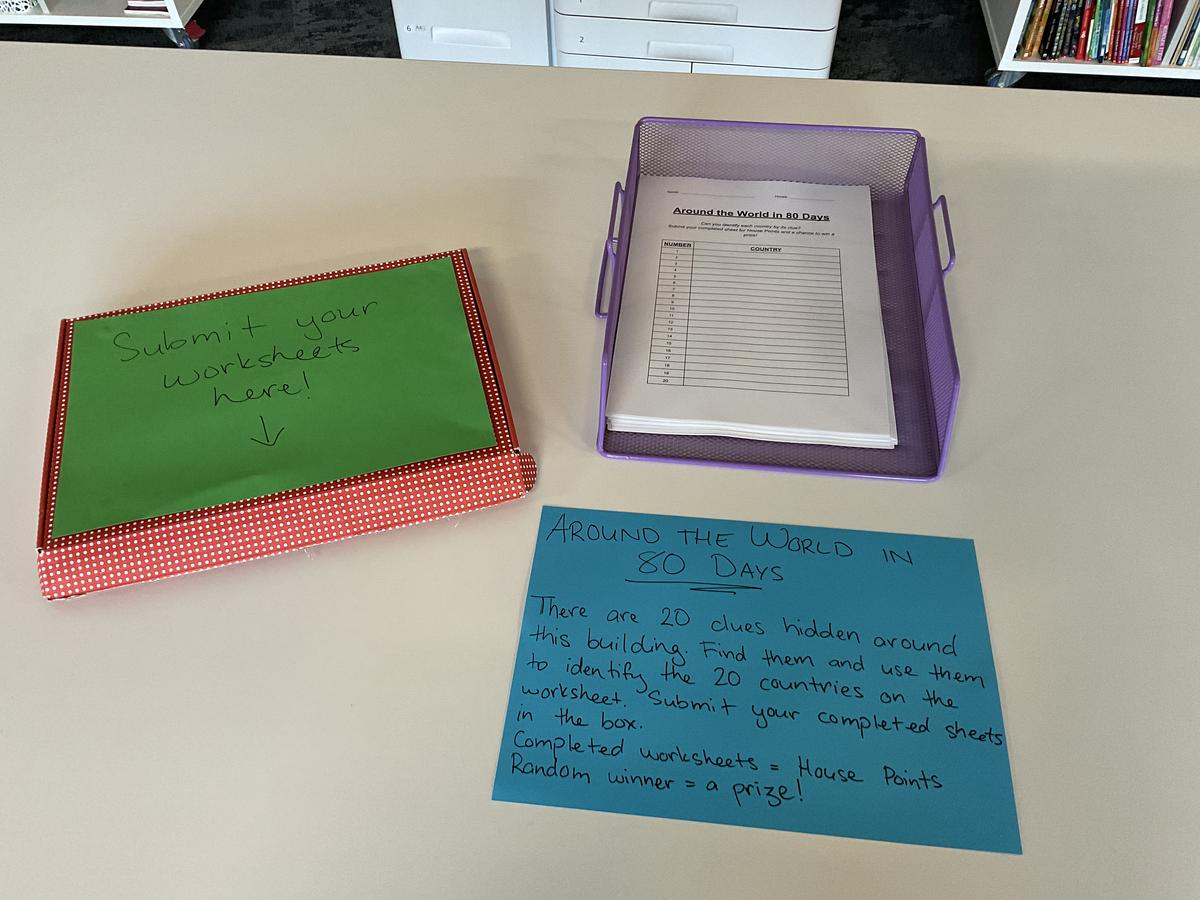 6 A4
1
2
Submit your
worksheets
here!
Name
House
Around the World in 80 Days
Can you identify each country by its clue?
Submit your completed sheet for House Points and a chance to win a
prize!
NUMBER COUNTRY
1
2
3
4
5
6
7
8
9
10
11
12
13
14
15
16
17
18
19
20
AROUND THE WORLD IN
80 DAYS
There are 20 clues hidden around
this building. Find them and use them
to identify the 20 countries on the
worksheet. Submit your completed sheets
in the box.
Completed worksheets = House Points
Random winner = a prize!